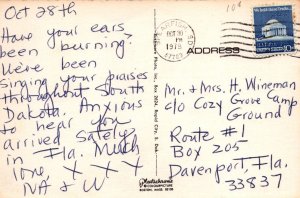 Oct 28th
Have your ears
been burning?
We've been
singing your praises
throughout South
Dakota. Anxious
to hear you
arrived safely
in Fla. Much
love, X X X
NA & W
10¢
OCT 30
PM
1978
ADDRESS
10c
Mr. & Mrs. H. Wineman
c/o Cozy Grove Camp
Ground
Route #1
Box 205
Davenport, Fla.
33837
Plastichrome
COLOURPICTURE